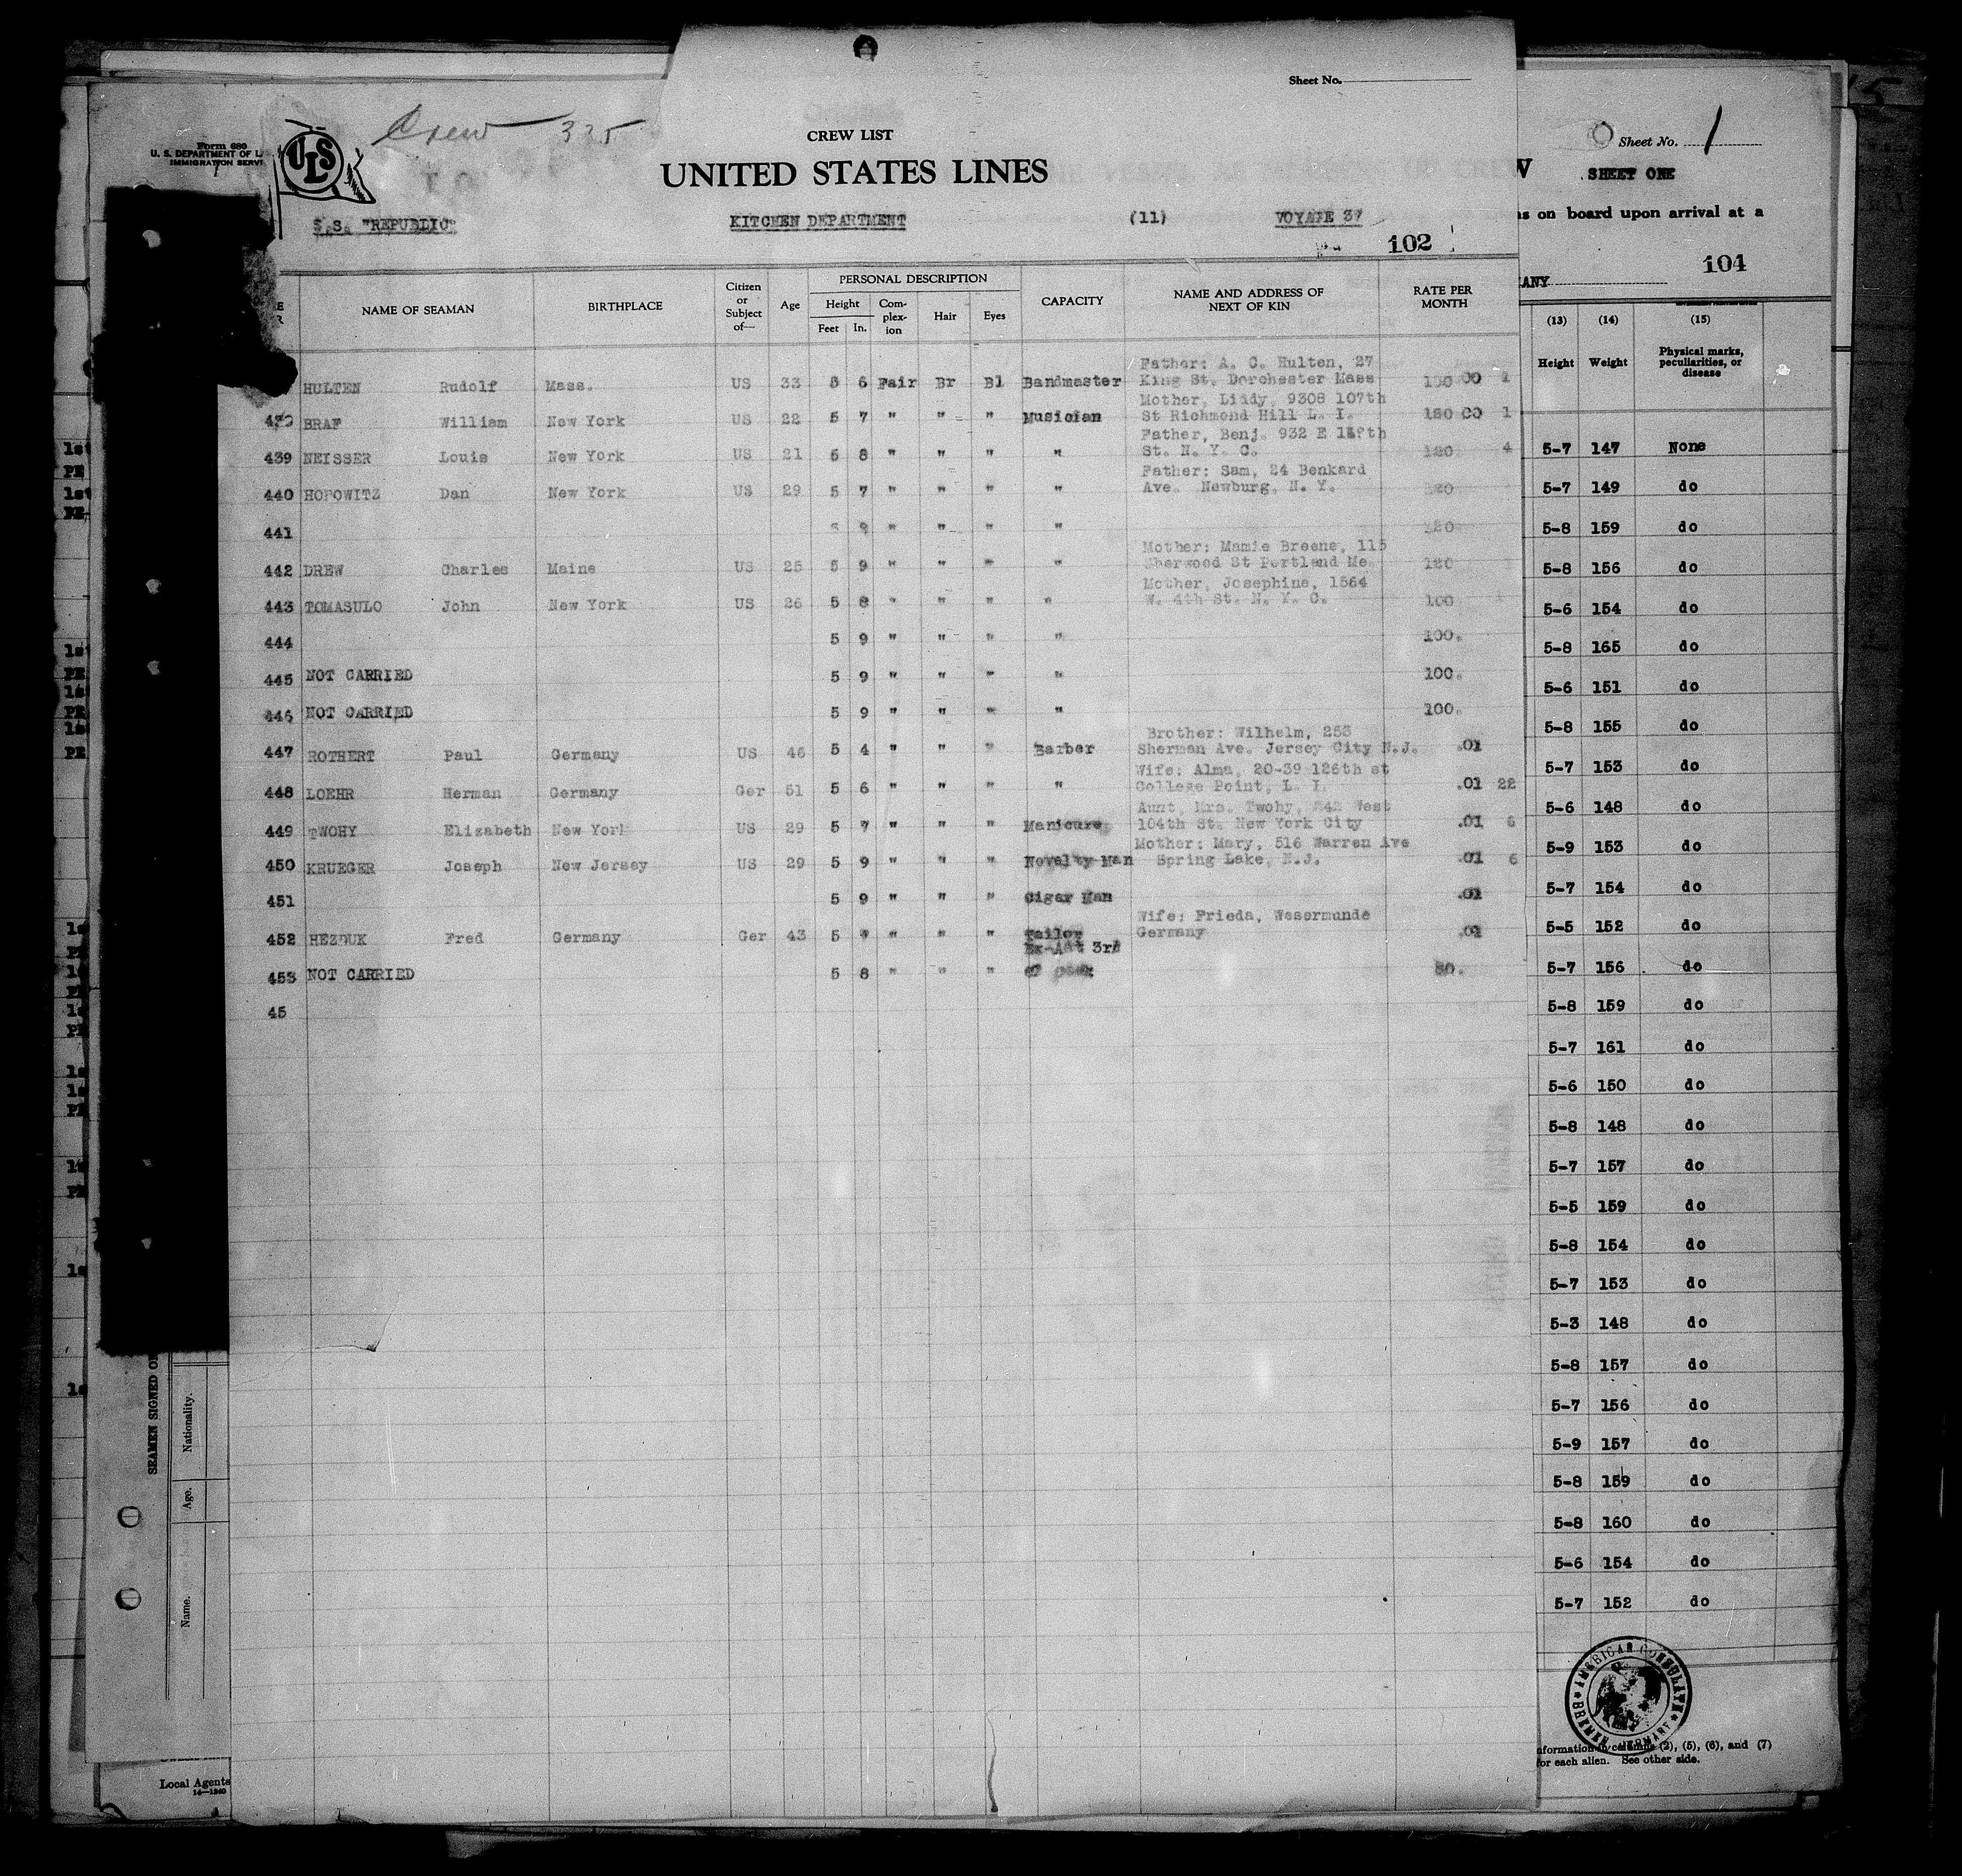 Sheet No.
Crew 335
Form 680
U. S. DEPARTMENT OF L
IMMIGRATION SERVI
ULS
CREW LIST
UNITED STATES LINES
S.S. "REPUBLIC" KITCHEN DEPARTMENT (11) VOYAGE 37
102
NAME OF SEAMAN BIRTHPLACE Citizen or Subject of— Age PERSONAL DESCRIPTION Height Feet In. Complexion Hair Eyes CAPACITY NAME AND ADDRESS OF NEXT OF KIN RATE PER MONTH
Father: A. C. Hulten, 27
HULTEN Rudolf Mass. US 33 5 6 Fair Br Bl Bandmaster King St. Dorchester Mass 00 1
Mother, Liddy, 9308 107th
BRAF William New York US 22 5 7 " " " Musician St Richmond Hill L. I. 120 00 1
Father, Benj. 932 E
439 NEISSER Louis New York US 21 5 8 " " " " St. N. Y. C. 120 4
Father: Sam, 24 Benkard
440 HOROWITZ Dan New York US 29 5 7 " " " " Ave. Newburg, N. Y. 120
441 5 9 " " " " 120
Mother: Mamie Breene, 115
442 DREW Charles Maine US 25 5 9 " " " " Sherwood St Portland Me. 120
Mother, Josephine, 1564
443 TOMASULO John New York US 26 5 8 " " " " W. 4th St. N. Y. C. 100
444 5 9 " " " " 100.
445 NOT CARRIED 5 9 " " " " 100.
446 NOT CARRIED 5 9 " " " " 100.
Brother: Wilhelm, 253
447 ROTHERT Paul Germany US 46 5 4 " " " Barber Sherman Ave. Jersey City N.J. .01
Wife: Alma, 20-39 126th st
448 LOEHR Herman Germany Ger 51 5 6 " " " " College Point, L. I. .01 22
Aunt, Mrs. Twohy, 242 West
449 TWOHY Elizabeth New York US 29 5 7 " " " Manicure 104th St. New York City .01 6
Mother: Mary, 516 Warren Ave
450 KRUEGER Joseph New Jersey US 29 5 9 " " " Novelty Man Spring Lake, N.J. .01 6
451 5 9 " " " Cigar Man .01
Wife: Frieda, Wesermunde
452 HEZDUK Fred Germany Ger 43 5 " " " Tailor Germany .01
3rd
453 NOT CARRIED 5 8 " " " 80.
45
Sheet No. 1
SHEET ONE
as on board upon arrival at a
104
ANY
(13) (14) (15)
Height Weight Physical marks, peculiarities, or disease
5-7 147 None
5-7 149 do
5-8 159 do
5-8 156 do
5-6 154 do
5-8 165 do
5-6 151 do
5-8 155 do
5-7 153 do
5-6 148 do
5-9 153 do
5-7 154 do
5-5 152 do
5-7 156 do
5-8 159 do
5-7 161 do
5-6 150 do
5-8 148 do
5-7 157 do
5-5 159 do
5-8 154 do
5-7 153 do
5-3 148 do
5-8 157 do
5-7 156 do
5-9 157 do
5-8 159 do
5-8 160 do
5-6 154 do
5-7 152 do
AMERICAN CONSULATE
BREMEN GERMANY
nformation in columns (2), (5), (6), and (7)
for each alien. See other side.
SEAMEN SIGNED
Nationality.
Age.
Name.
Local Agents
14—1240